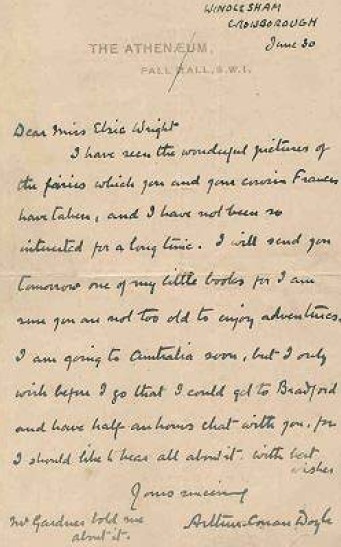 WINDLESHAM
CROWBOROUGH
June 30
THE ATHENÆUM,
PALL MALL, S.W.1.
Dear Miss Elsie Wright
I have seen the wonderful pictures of
the fairies which you and your cousin Frances
have taken, and I have not been so
interested for a long time. I will send you
tomorrow one of my little books for I am
sure you are not too old to enjoy adventures.
I am going to Australia soon, but I only
wish before I go that I could get to Bradford
and have half an hours chat with you, for
I should like to hear all about it. With best
wishes
Yours sincerely
Arthur Conan Doyle
Mr Gardner told me
about it.